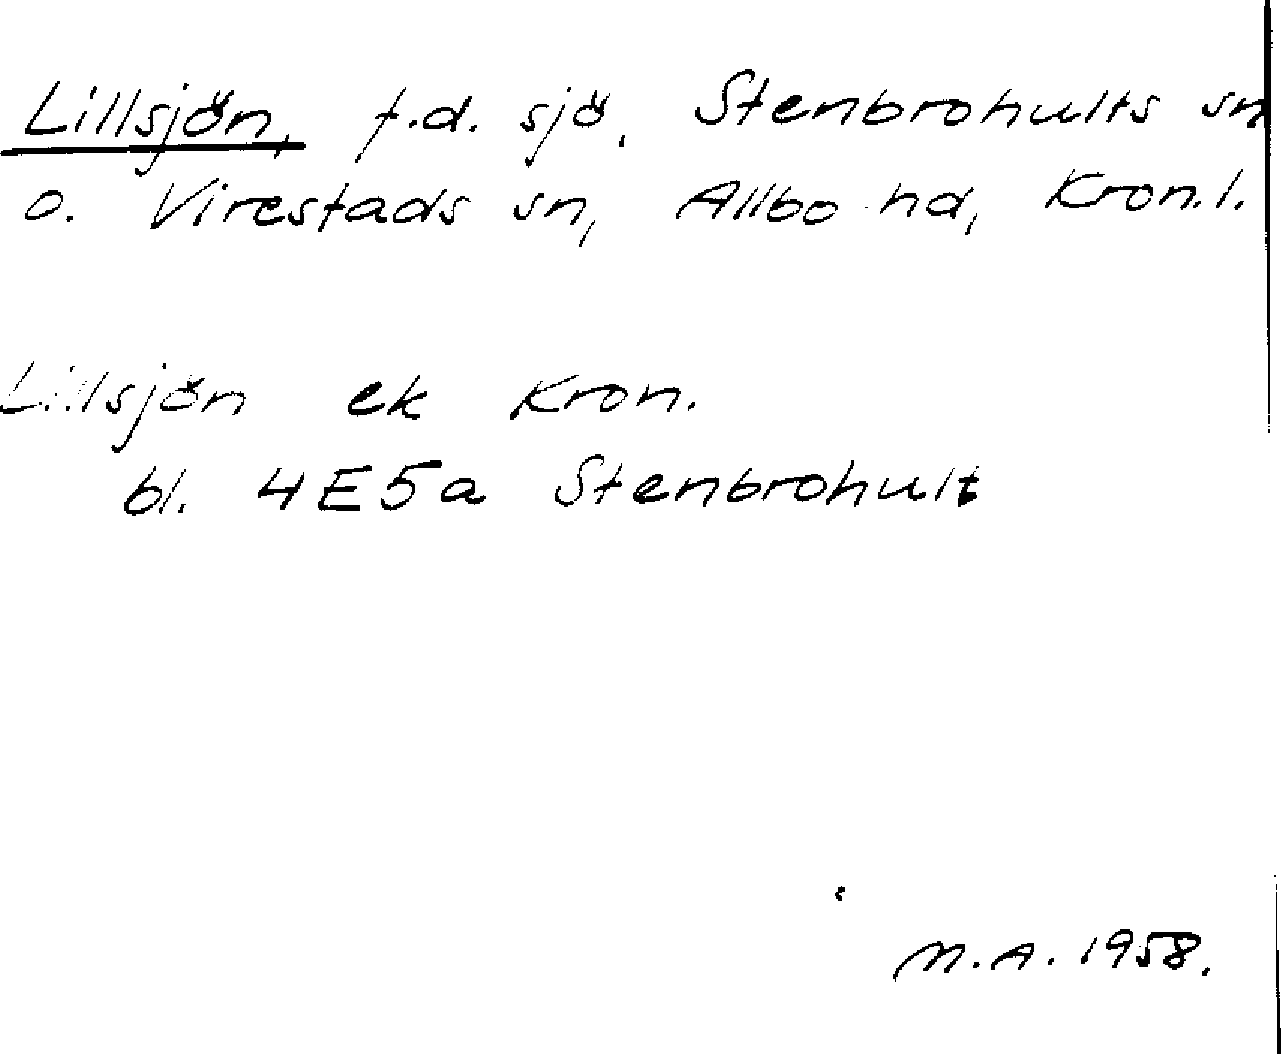 Lillsjön, f.d. sjö, Stenbrohults sn
o. Virestads sn, Allbo hd, Kron.l.
Lillsjön ek Kron.
bl. 4E5a Stenbrohult
M.A. 1958.